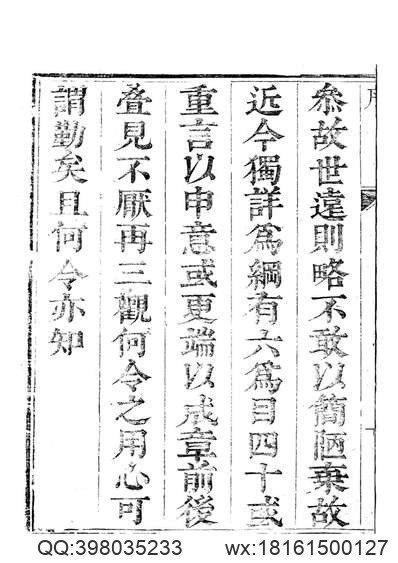 序
叅故世遠則略不敢以簡陋棄故
近今獨詳爲綱有六爲目四十或
重言以申意或更端以成章前後
叠見不厭再三觀何令之用心可
謂勤矣且何令亦知
QQ:398035233 wx:18161500127